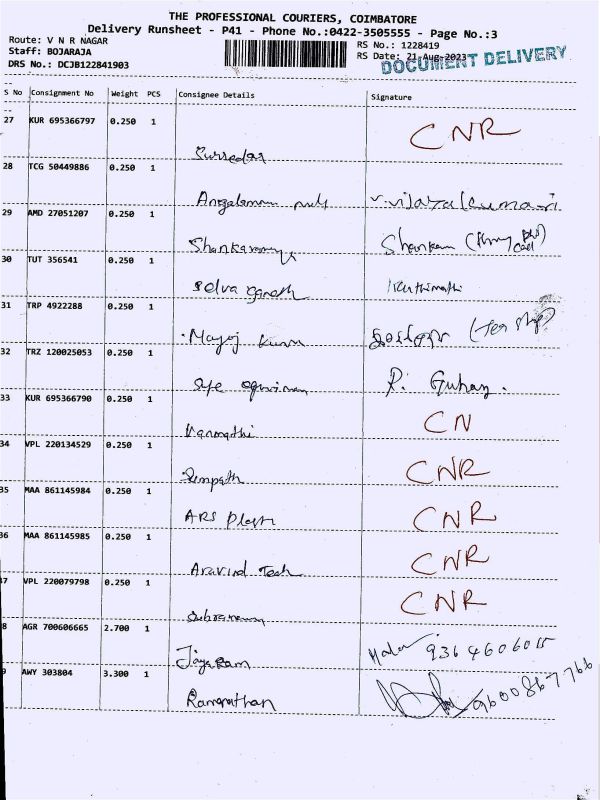 THE PROFESSIONAL COURIERS, COIMBATORE
Delivery Runsheet - P41 - Phone No.:0422-3505555 - Page No.:3
Route: V N R NAGAR
Staff: BOJARAJA
DRS No.: DCJB122841903
RS No.: 1228419
RS Date: 21-Aug-2023
DOCUMENT DELIVERY
S No Consignment No Weight PCS Consignee Details Signature
27 KUR 695366797 0.250 1 CNR
28 TCG 50449886 0.250 1 v.vijayalkumari
29 AMD 27051207 0.250 1 Shankar
30 TUT 356541 0.250 1 Selva ganesh
31 TRP 4922288 0.250 1 (tea shop)
32 TRZ 120025053 0.250 1 R. Guhan.
33 KUR 695366790 0.250 1 CN
34 VPL 220134529 0.250 1 Sampath CNR
35 MAA 861145984 0.250 1 ARS Plast CNR
36 MAA 861145985 0.250 1 Aravind Tech CNR
37 VPL 220079798 0.250 1 CNR
8 AGR 700606665 2.700 1 Jayaram Mala 9364606015
9 AWY 303804 3.300 1 Ramanathan 9600867766